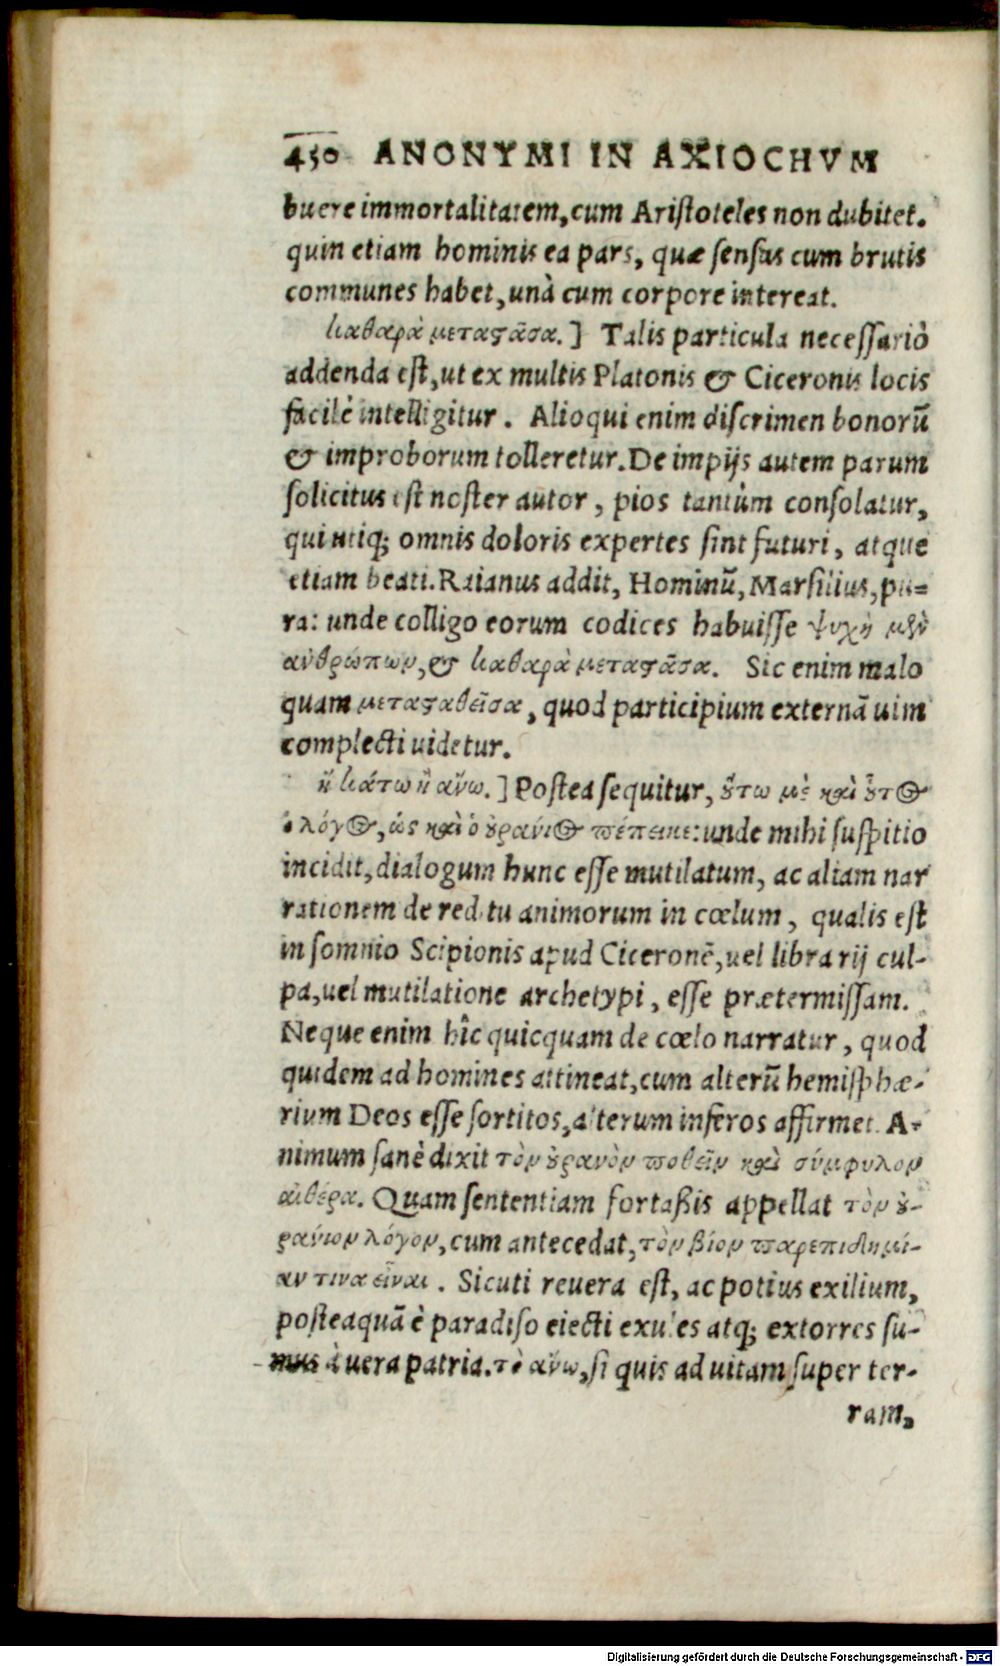 450 ANONYMI IN AXIOCHVM
buere immortalitatem, cum Aristoteles non dubitet.
quin etiam hominis ea pars, quæ sensus cum brutis
communes habet, unà cum corpore intereat.
καθαρὰ μεταϛᾶσα.] Talis particula necessariò
addenda est, ut ex multis Platonis & Ciceronis locis
facilè intelligitur. Alioqui enim discrimen bonorū
& improborum tolleretur. De impijs autem parum
solicitus est noster autor, pios tantùm consolatur,
qui utiq; omnis doloris expertes sint futuri, atque
etiam beati. Raianus addit, Hominū, Marsilius, pu=
ra: unde colligo eorum codices habuisse ψυχὴ μὲν
ἀνθρώπων, & καθαρὰ μεταϛᾶσα. Sic enim malo
quam μεταϛαθεῖσα, quod participium externā uim
complecti uidetur.
ἢ κάτω ἢ ἄνω.] Postea sequitur, ȣ̔́τω μὲ καὶ ȣ̔͂τος
ὁ λόγος, ὡς καὶ ὁ ȣ̓ράνιος πέπεικε: unde mihi suspitio
incidit, dialogum hunc esse mutilatum, ac aliam nar
rationem de reditu animorum in cœlum, qualis est
in somnio Scipionis apud Ciceronē, uel librarij cul-
pa, uel mutilatione archetypi, esse prætermissam.
Neque enim hîc quicquam de cœlo narratur, quod
quidem ad homines attineat, cum alterū hemisphæ-
rium Deos esse sortitos, alterum inferos affirmet. A-
nimum sanè dixit τὸν ȣ̓ρανὸν ποθεῖν καὶ σύμφυλον
αἰθέρα. Quam sententiam fortaßis appellat τὸν ȣ̓-
ράνιον λόγον, cum antecedat, τὸν βίον παρεπιδημί-
αν τινα εἶναι. Sicuti reuera est, ac potius exilium,
posteaquā è paradiso eiecti exules atq; extorres su-
mus à uera patria. τὸ ἄνω, si quis ad uitam super ter-
ram,
Digitalisierung gefördert durch die Deutsche Forschungsgemeinschaft - DFG